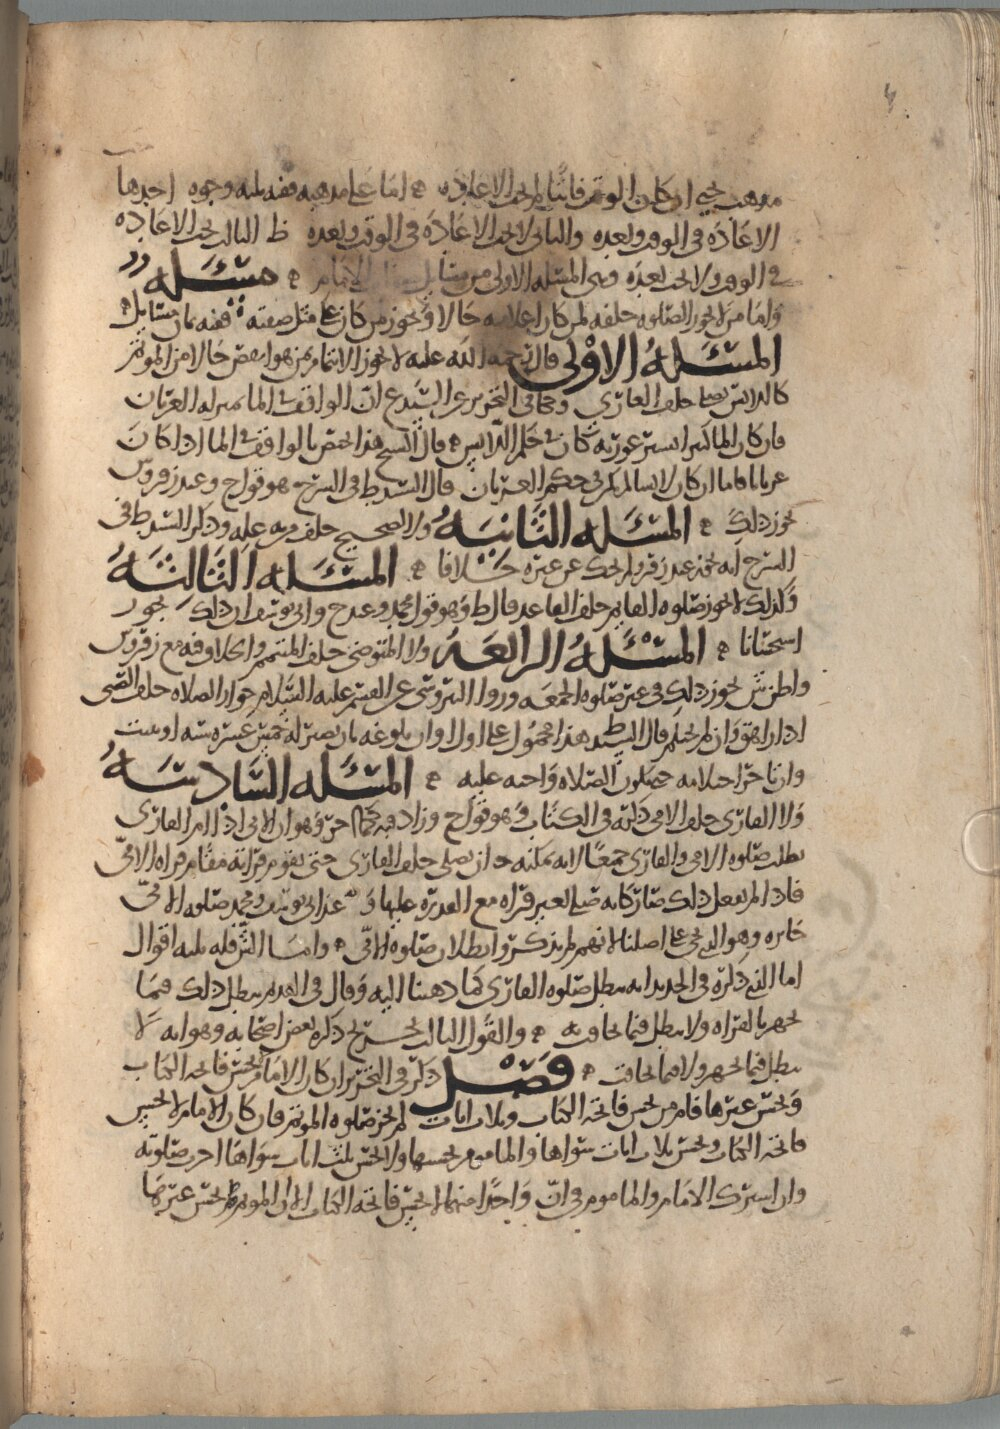 مذهب يحيى ان كان الوقت فائتا لم تجب الاعاده اما على مذهبه ففيه ثلثه وجوه احدها
الاعاده في الوقت وبعده والثاني لا تجب الاعادة في الوقت وبعده ط الثالث تجب الاعاده
في الوقت ولا تجب بعده وهي المسئله الاولى من مسايل الامام مسئله
واما من لا تجوز الصلوه خلفه لمن كان اعلا منه حالا وتجوز لمن كان على مثل صفته ففيه ثمان مسايل
المسئله الاولى قال رحمه الله عليه لا يجوز الائتمام بمن هو انقص حالا من المؤتم
كاللابس يصلي خلف العاري وحكى في التحرير عن السيد ع ان الواقف في الما بمنزله العريان
فان كان الما كدرا يستر عورته كان في حكم اللابس قال الشيخ هذا يختص بالواقف في الما اذا كان
عريانا فاما ان كان لابسا لم يكن في حكم العريان قال السيد ط في الشرح هو قول ح وعند زفر وش
يجوز ذلك المسئله الثانيه ولا الصحيح خلف من به عله وذكر السيد ط في
الشرح انه يجوز عند زفر ولم يحك عن غيره خلافا المسئله الثالثه
وكذلك لا تجوز صلوه القايم خلف القاعد قال ط وهو قول محمد وعند ح وابي يوسف ان ذلك يجوز
استحسانا المسئله الرابعه ولا المتوضي خلف المتيمم والخلاف فيه مع زفر وش
واطلق ش تجوز ذلك في غير صلوه الجمعه وروى النيروسي عن القسم عليه السلام جواز الصلاه خلف الصبي
اذا راهق وان لم يحتلم قال السيد ط هذا محمول على اول اوان بلوغه بان يصير له خمس عشره سنه او ينبت
وان تاخر احتلامه حتى تكون الصلاه واجبه عليه المسئله السادسه
ولا القارئ خلف الامي ذكره في الكتاب وهو قول ح وزاد فيه حكما اخر وهو ان الامي اذا ام القارئ
بطلت صلوه الامي والقارئ جميعا لانه يمكنه ان يصلي خلف القارئ حتى تقوم قراته مقام قراه الامي
فاذا لم يفعل ذلك صار كانه صلى بغير قراه مع القدره عليها وعند ابي يوسف ومحمد صلوه الامي
جايزه وهو الذي يجي على اصلنا لانهم لم يذكروا بطلان صلوه الامي واما الش فله ثلثه اقوال
اما الذي ذكره في الجديد انه يبطل صلوه القارئ كما ذهبنا اليه وقال في القديم يبطل ذلك فيما
يجهر بالقراه ولا يبطل فيما يخافت والقول الثالث مخرج ذكره بعض اصحابه وهو انه لا
يبطل فيما يجهر ولا فيما يخافت فصل ذكر في التحرير ان كان الامام يحسن فاتحه الكتاب
ويحسن غيرها فام من يحسن فاتحة الكتاب وثلاث ايات لم تجز صلوه المؤتم فان كان الامام لا يحسن
فاتحه الكتاب ويحسن ثلاث ايات سواها والماموم يحسنها ولا يحسن ثلث ايات سواها اجزت صلوته
وان اشترك الامام والماموم في ان واحدا منهما لا يحسن فاتحة الكتاب الا ان المؤتم يحسن غيرها